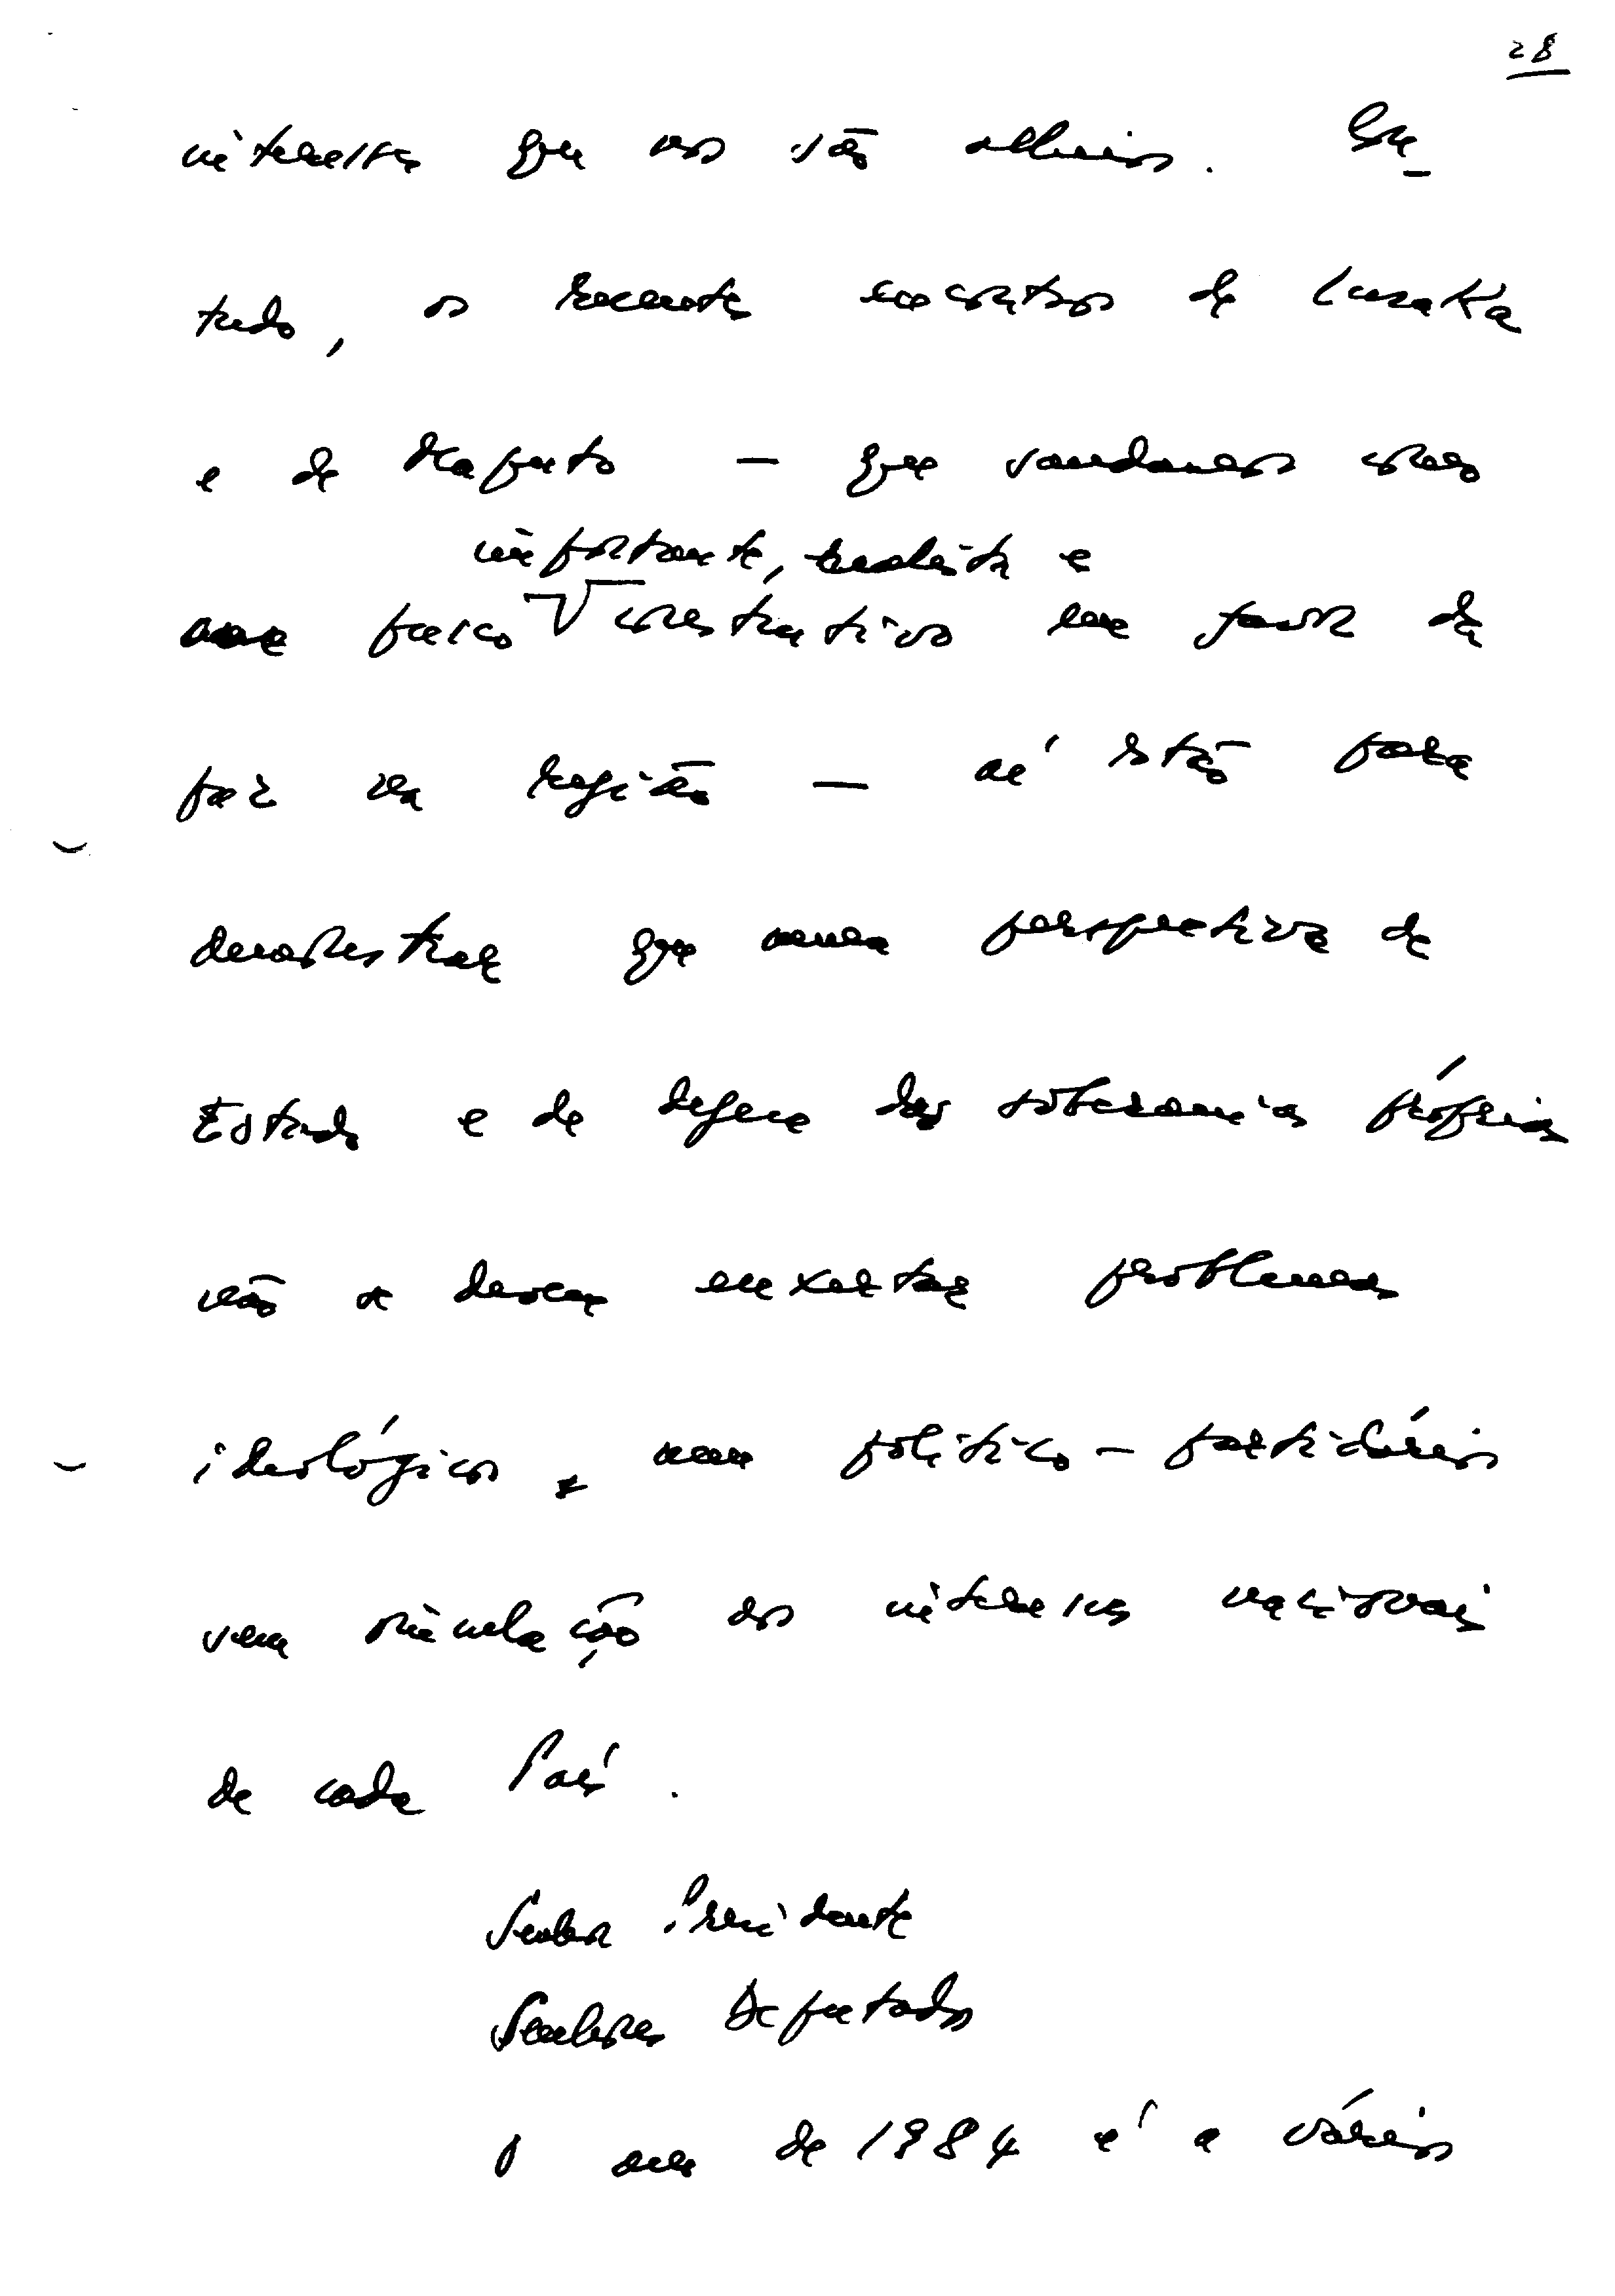 28
interesses que nos são alheios. Con-
tudo, os recentes encontros de Lusaka
e de Maputo — que saudamos como
importante, realista e
passo construtivo em favor da
paz na região — aí estão para
demonstrar que numa perspectiva de
Estado e de defesa das soberanias próprias
não se devem enxertar problemas
ideológicos nem político-partidários
sem vinculação aos interesses nacionais
de cada País.
Senhor Presidente
Senhores Deputados
O ano de 1984 é a vários